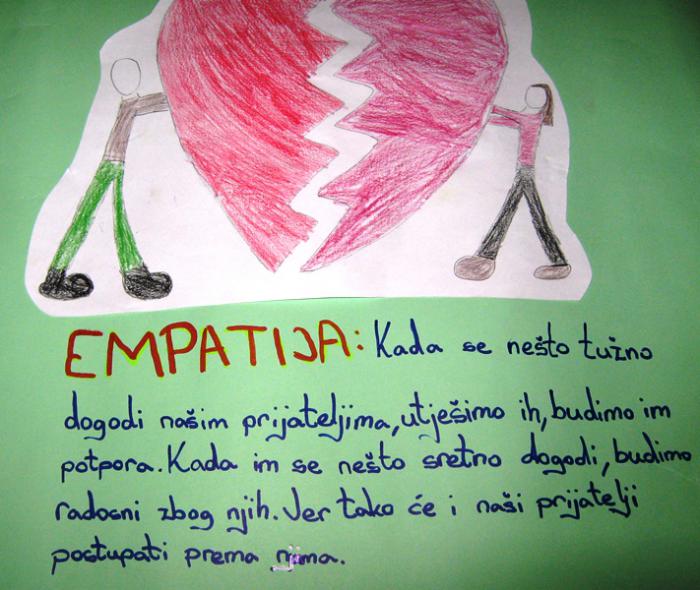 EMPATIJA: Kada se nešto tužno
dogodi našim prijateljima, utješimo ih, budimo im
potpora. Kada im se nešto sretno dogodi, budimo
radosni zbog njih. Jer tako će i naši prijatelji
postupati prema njima.